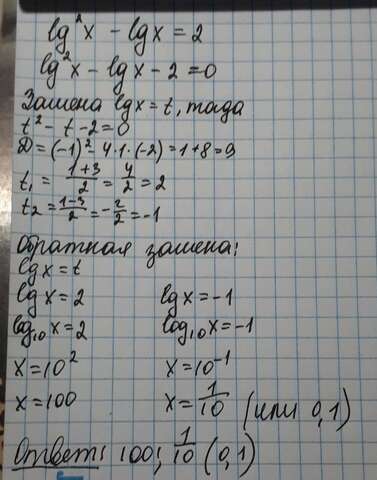 lg²x - lgx = 2
lg²x - lgx - 2 = 0
Замена lgx = t, тогда
t² - t - 2 = 0
D = (-1)² - 4·1·(-2) = 1+8 = 9
t₁ = (1+3)/2 = 4/2 = 2
t₂ = (1-3)/2 = -2/2 = -1
Обратная замена:
lgx = t
lgx = 2 lgx = -1
log₁₀x = 2 log₁₀x = -1
x = 10² x = 10⁻¹
x = 100 x = 1/10 (или 0,1)
Ответ: 100; 1/10 (0,1)